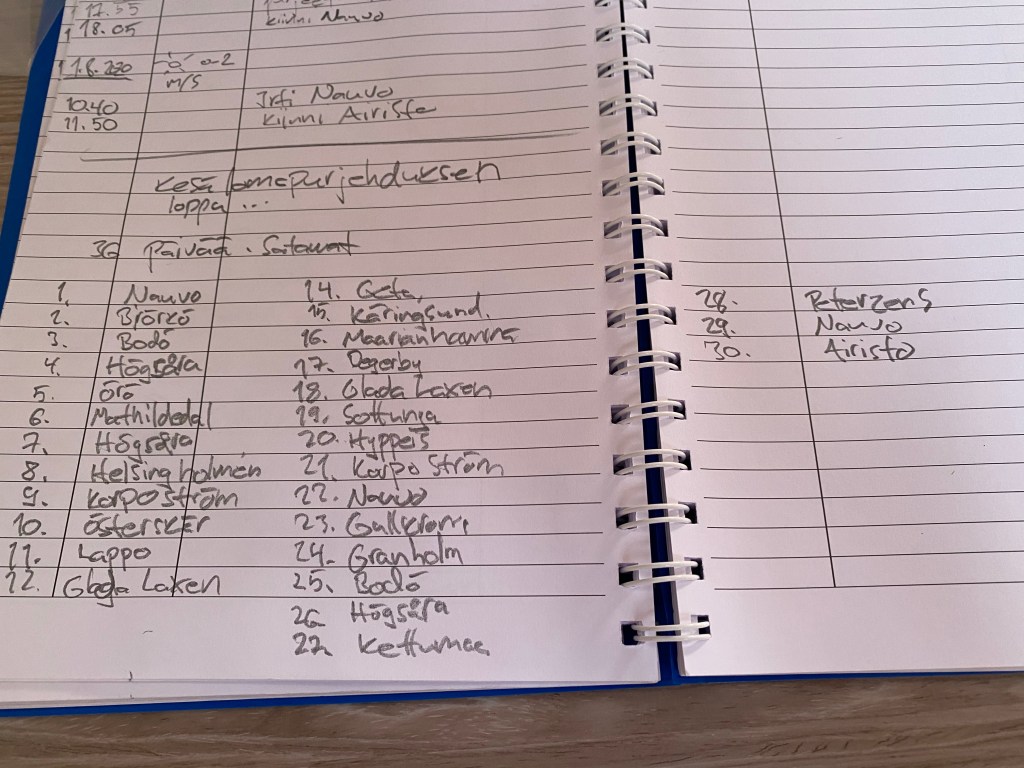 17.55
18.05 Kiinni Nauvo
1.8.220 0-2
m/s
10.40 Irti Nauvo
11.50 Kiinni Airisto
Kesä lomapurjehduksen
loppu ...
30 Päivää. Satamat
1. Nauvo
2. Björkö
3. Bodö
4. Högsåra
5. Örö
6. Mathildedal
7. Högsåra
8. Helsingholmen
9. Korpoström
10. Österskär
11. Lappo
12. Glada Laxen
14. Geta,
15. Käringsund.
16. Maarianhamina
17. Degerby
18. Glada Laxen
19. Sottunga
20. Hyppeis
21. Korpo Ström
22. Nauvo
23. Gullkrona
24. Granholm
25. Bodö
26 Högsåra
27. Kettumaa
28. Peterzens
29. Nauvo
30. Airisto